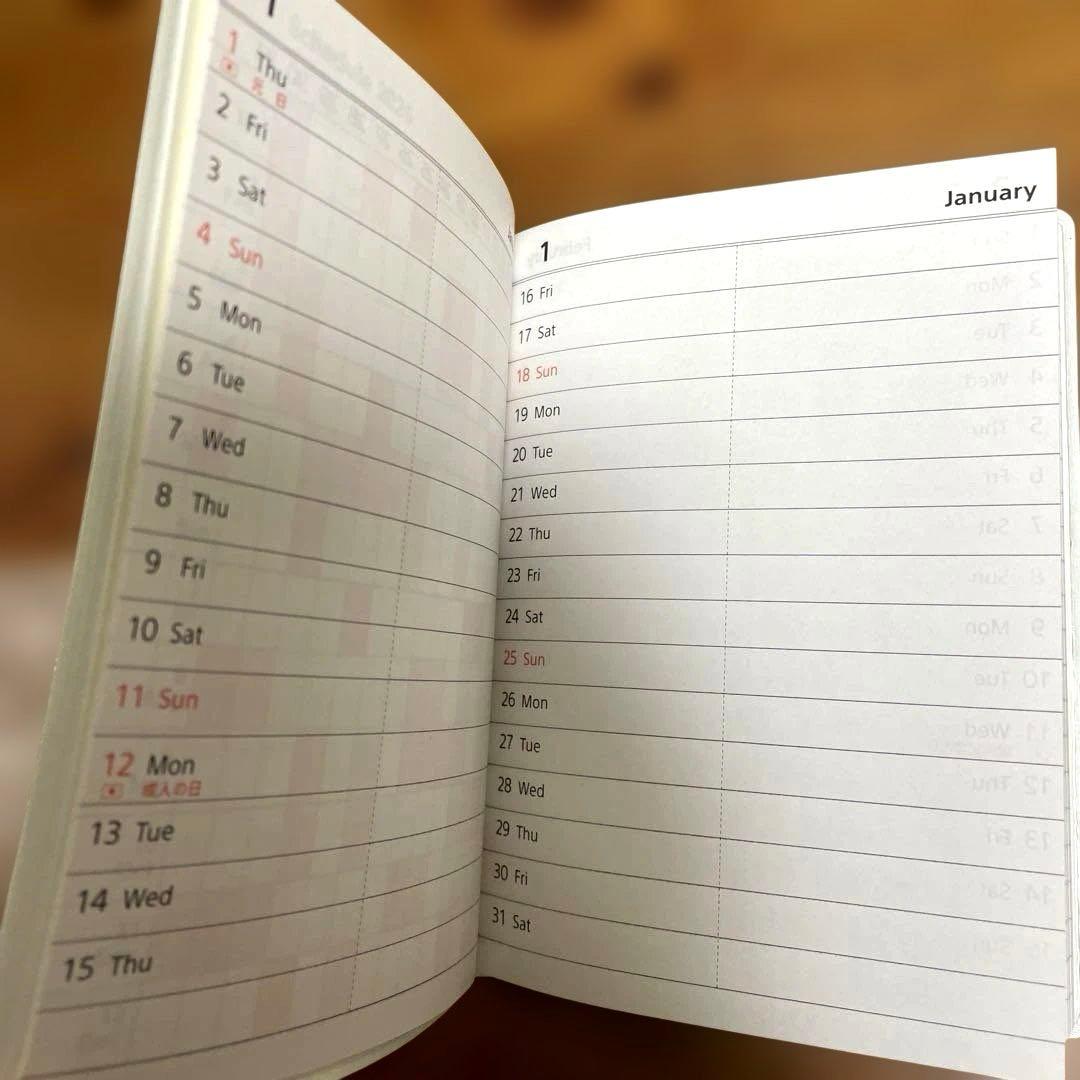 1
1 Thu
元日
2 Fri
3 Sat
4 Sun
5 Mon
6 Tue
7 Wed
8 Thu
9 Fri
10 Sat
11 Sun
12 Mon
成人の日
13 Tue
14 Wed
15 Thu
January
1
16 Fri
17 Sat
18 Sun
19 Mon
20 Tue
21 Wed
22 Thu
23 Fri
24 Sat
25 Sun
26 Mon
27 Tue
28 Wed
29 Thu
30 Fri
31 Sat